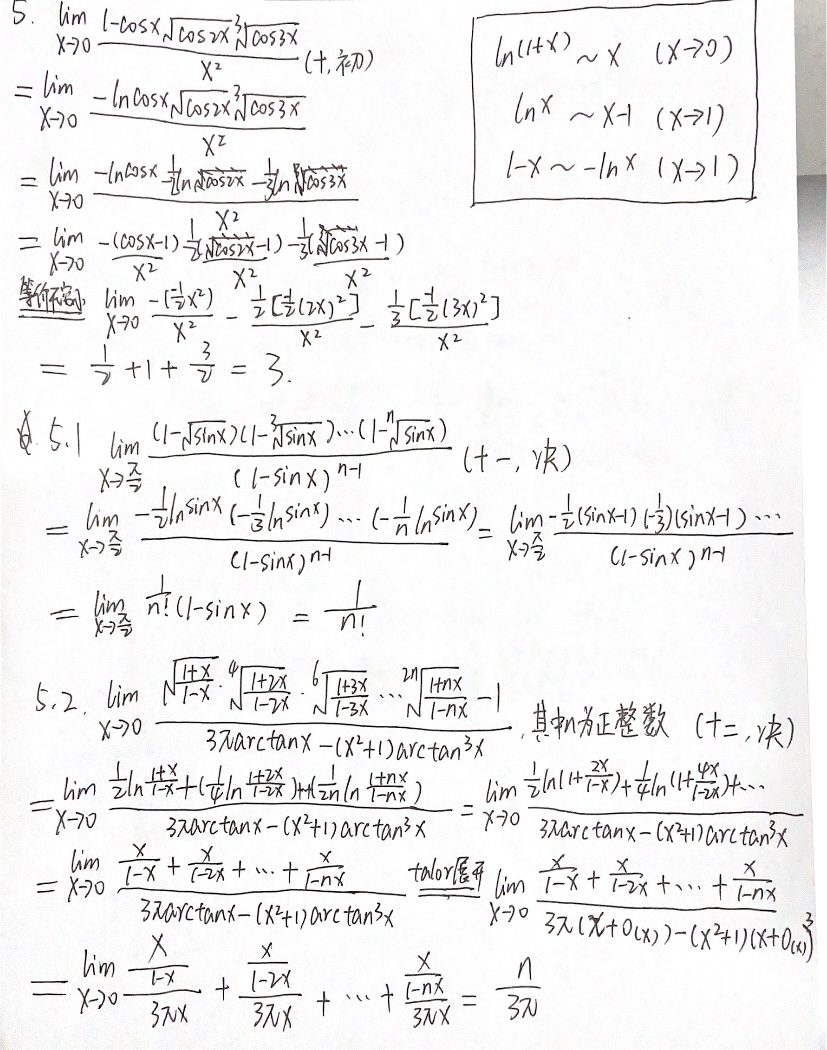 5. lim x→0 (1-cosx√cos2x ∛cos3x)/x² (十,初)
= lim x→0 (-lncosx√cos2x ∛cos3x)/x²
= lim x→0 (-lncosx -½ln cos2x -⅓ln cos3x)/x²
= lim x→0 -(cosx-1)/x² -½(cos2x-1)/x² -⅓(cos3x-1)/x²
等价无穷小 lim x→0 -(-½x²)/x² - ½[-½(2x)²]/x² - ⅓[-½(3x)²]/x²
= 1/2 + 1 + 3/2 = 3.
ln(1+x) ~ x (x→0)
lnx ~ x-1 (x→1)
1-x ~ -lnx (x→1)
5.1 lim x→π/2 (1-√sinx)(1-∛sinx)…(1-ⁿ√sinx)/(1-sinx)ⁿ⁻¹ (十一,决)
= lim x→π/2 -½lnsinx(-⅓lnsinx)…(-1/n lnsinx)/(1-sinx)ⁿ⁻¹ = lim x→π/2 -½(sinx-1)(-⅓)(sinx-1)…/(1-sinx)ⁿ⁻¹
= lim x→π/2 1/n! (1-sinx) = 1/n!
5.2. lim x→0 (√((1+x)/(1-x)) · ⁴√((1+2x)/(1-2x)) · ⁶√((1+3x)/(1-3x)) … ²ⁿ√((1+nx)/(1-nx)) -1)/(3πarctanx-(x²+1)arctan³x) ,其中n为正整数 (十二,决)
= lim x→0 (½ln(1+x)/(1-x)+(¼ln(1+2x)/(1-2x))+…+(1/2n ln(1+nx)/(1-nx)))/(3πarctanx-(x²+1)arctan³x) = lim x→0 (½ln(1+2x/(1-x))+¼ln(1+4x/(1-2x))+…)/(3πarctanx-(x²+1)arctan³x)
= lim x→0 (x/(1-x) + x/(1-2x) + … + x/(1-nx))/(3πarctanx-(x²+1)arctan³x) talor展开 lim x→0 (x/(1-x) + x/(1-2x) + … + x/(1-nx))/(3π(x+o(x))-(x²+1)(x+o(x))³)
= lim x→0 (x/(1-x))/(3πx) + (x/(1-2x))/(3πx) + … + (x/(1-nx))/(3πx) = n/(3π)